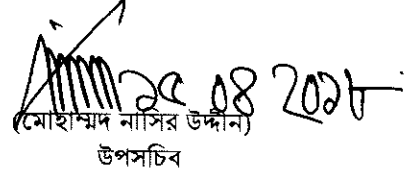 ২৫.০৪.২০১৮
(মোহাম্মদ নাসির উদ্দীন)
উপসচিব